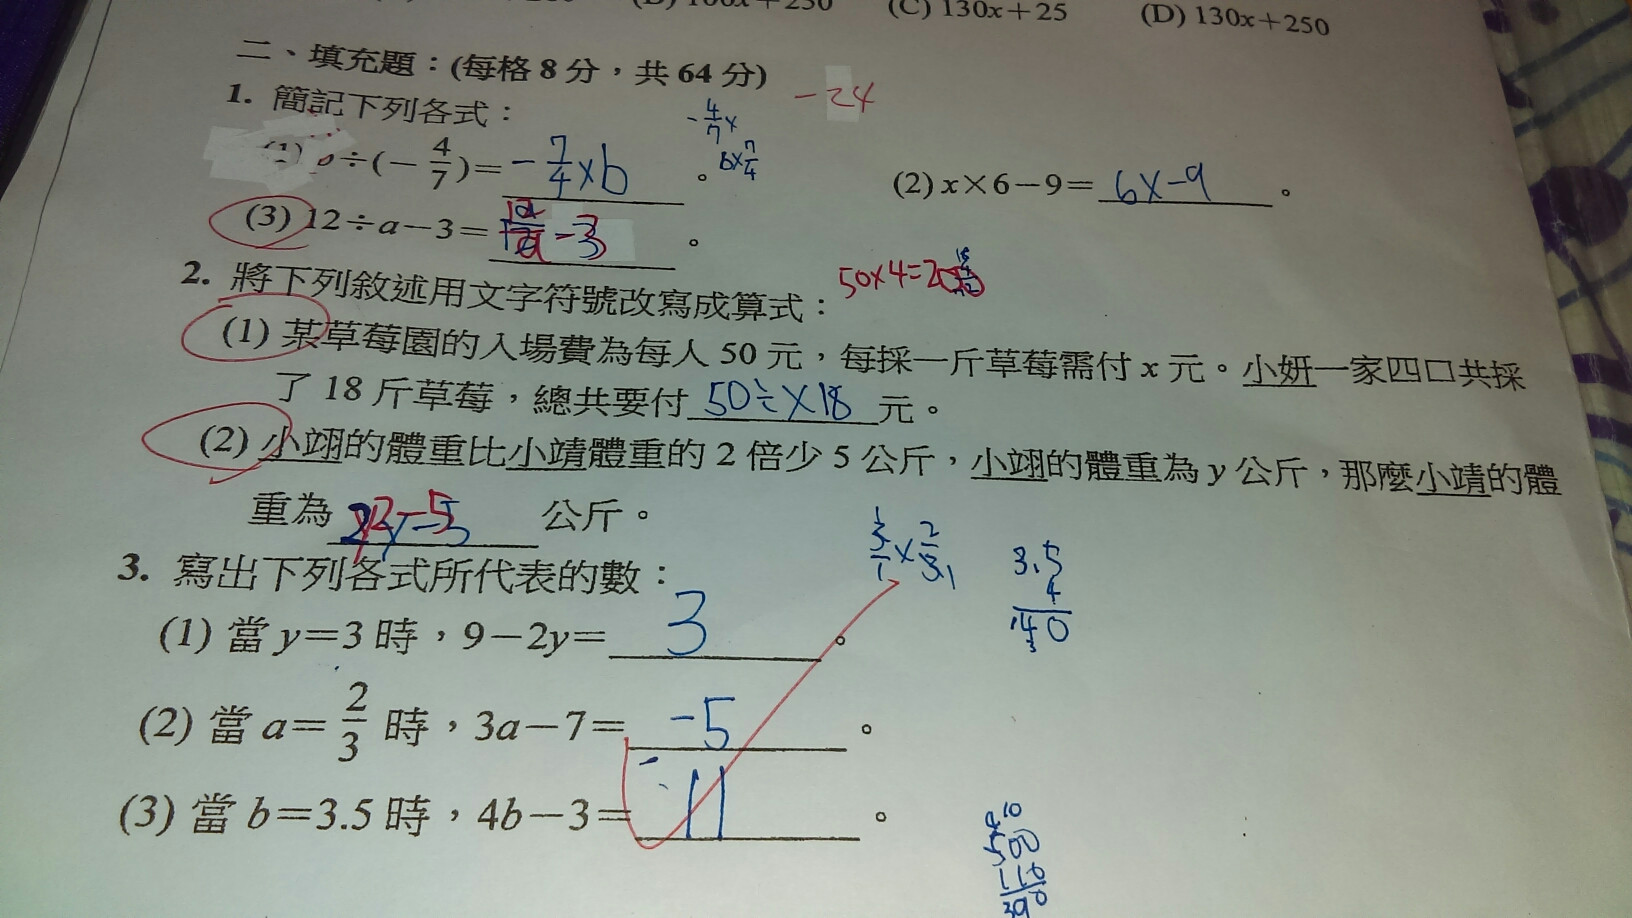 (C) 130x+25 (D) 130x+250
二、填充題：(每格 8 分，共 64 分) -24
1. 簡記下列各式：
(1) b÷(-4/7)= -7/4×b 。 (2) x×6-9= 6x-9 。
-4/7×
b×7/4
(3) 12÷a-3= 12/a -3 。
2. 將下列敘述用文字符號改寫成算式：
50×4=200
(1) 某草莓園的入場費為每人 50 元，每採一斤草莓需付 x 元。小妍一家四口共採
了 18 斤草莓，總共要付 50÷×18 元。
(2) 小翊的體重比小靖體重的 2 倍少 5 公斤，小翊的體重為 y 公斤，那麼小靖的體
重為 2y-5 公斤。
3. 寫出下列各式所代表的數：
3.5
4
140
(1) 當 y=3 時，9-2y= 3 。
(2) 當 a= 2/3 時，3a-7= -5 。
(3) 當 b=3.5 時，4b-3= 11 。